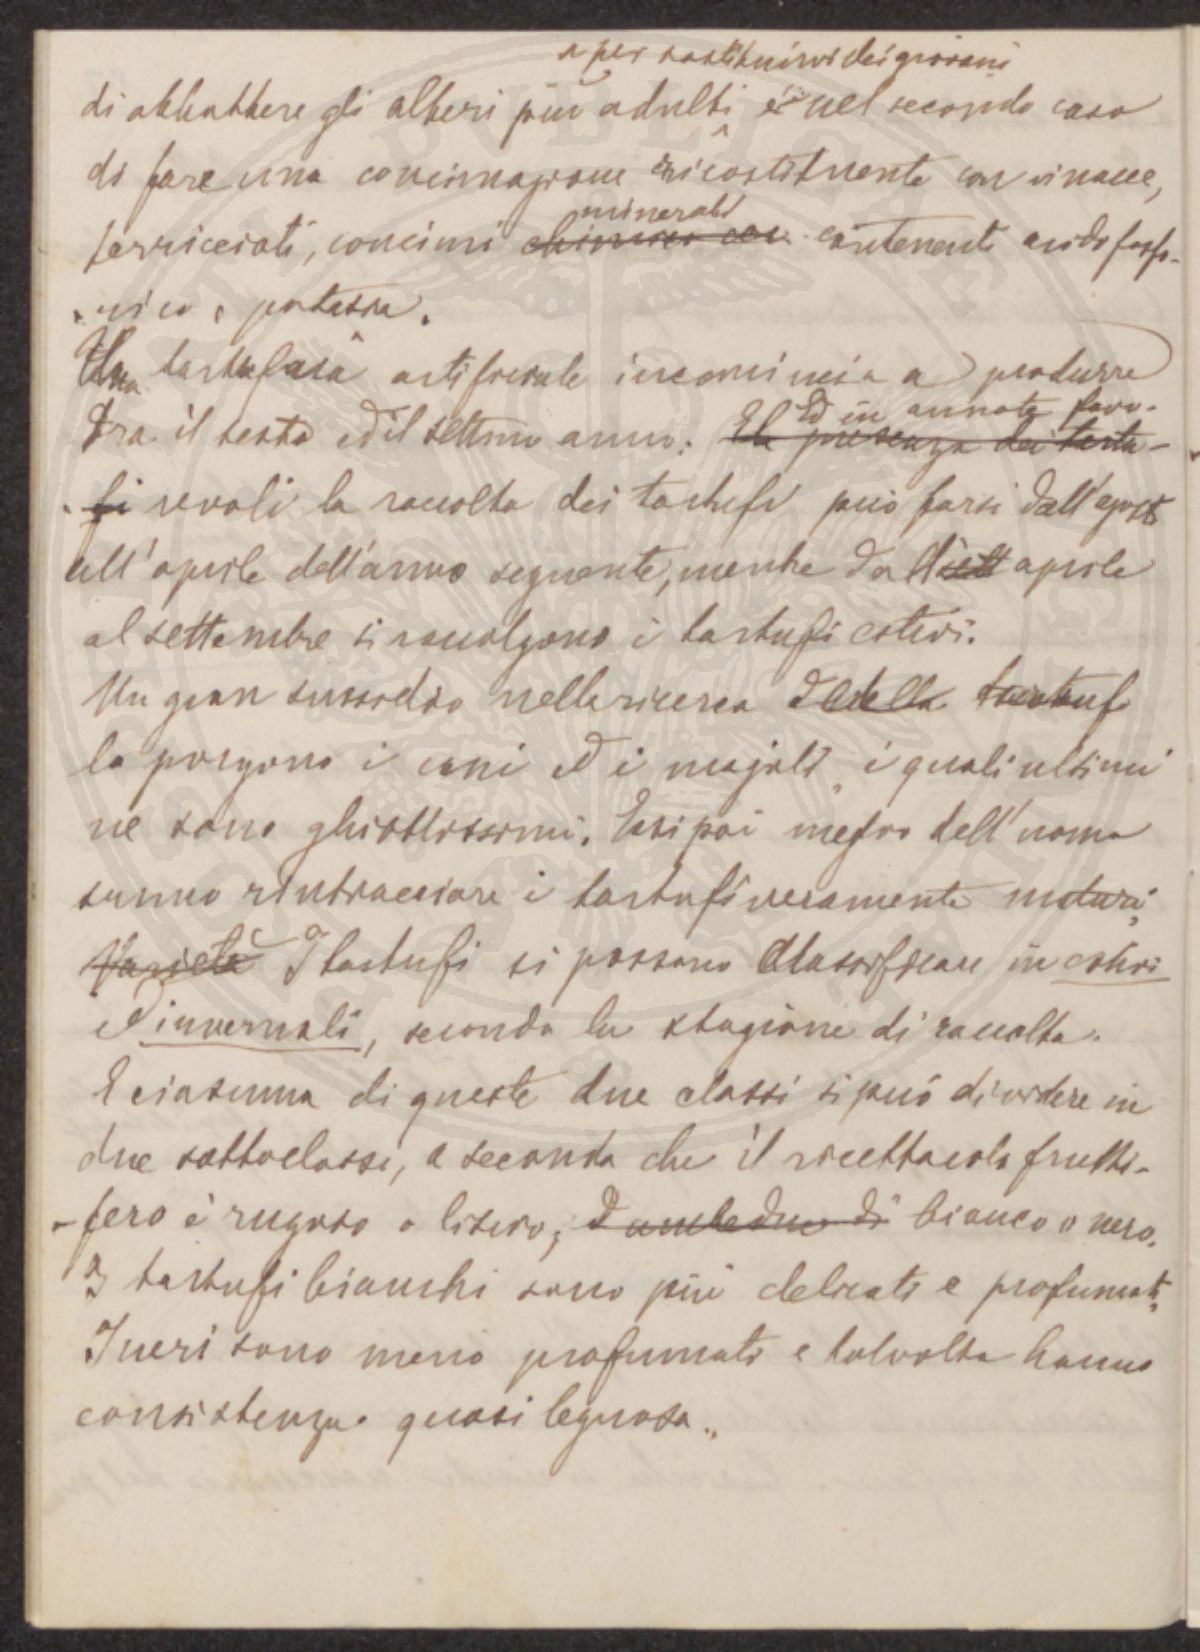 e per sostituirvi dei giovani
di abbattere gli alberi più adulti e nel secondo caso
di fare una concimazione ricostituente con vinacce,
minerali
terricciati, concimi chimici con contenenti acido fosfo-
-rico e potassa.
Una tartufaia artificiale incomincia a produrre
Ed in annate favo-
tra il sesto ed il settimo anno. La presenza dei tartu-
-fi revoli la raccolta dei tartufi può farsi dall'agosto
all'aprile dell'anno seguente, mentre dall' aprile
al settembre si raccolgono i tartufi estivi.
Un gran sussidio nella ricerca della tartuf
lo porgono i cani ed i majali, i quali ultimi
ne sono ghiottissimi. Essi poi meglio dell'uomo
sanno rintracciare i tartufi veramente maturi.
Varietà I tartufi si possono classificare in estivi
ed invernali, secondo la stagione di raccolta.
E ciascuna di queste due classi si può dividere in
due sottoclassi, a seconda che il ricettacolo frutti-
-fero è rugoso o liscio, d'ambedue di bianco o nero.
I tartufi bianchi sono più delicati e profumati.
I neri sono meno profumati e talvolta hanno
consistenza quasi legnosa.